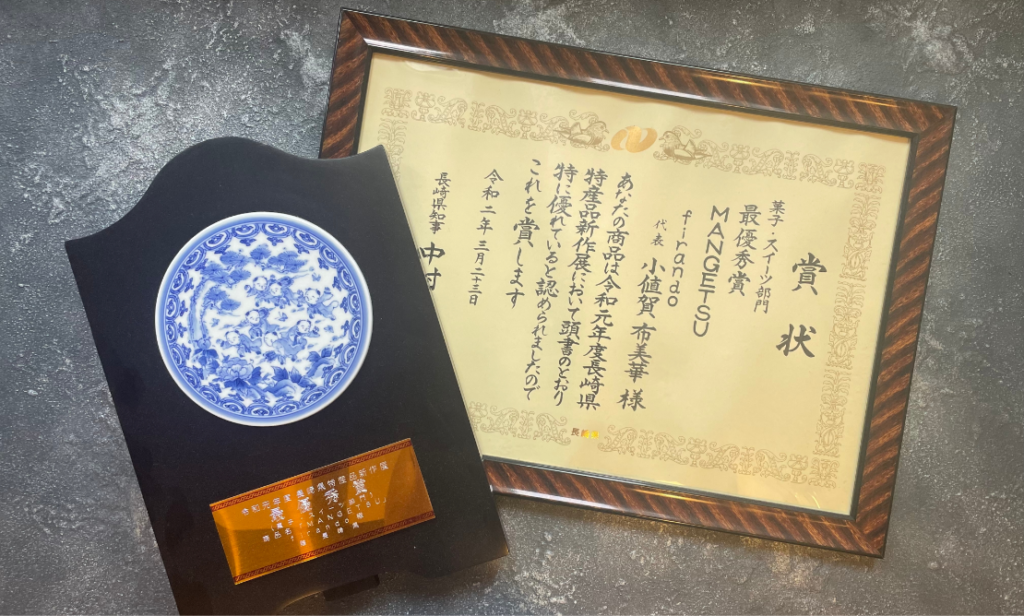 賞状
菓子・スイーツ部門
最優秀賞
MANGETSU
firando
代表 小値賀 布美華 様
あなたの商品は令和元年度長崎県
特産品新作展において頭書のとおり
特に優れていると認められましたので
これを賞します
令和二年三月二十三日
長崎県知事 中村
令和元年度長崎県特産品新作展
最優秀賞
MANGETSU
firando
長崎県